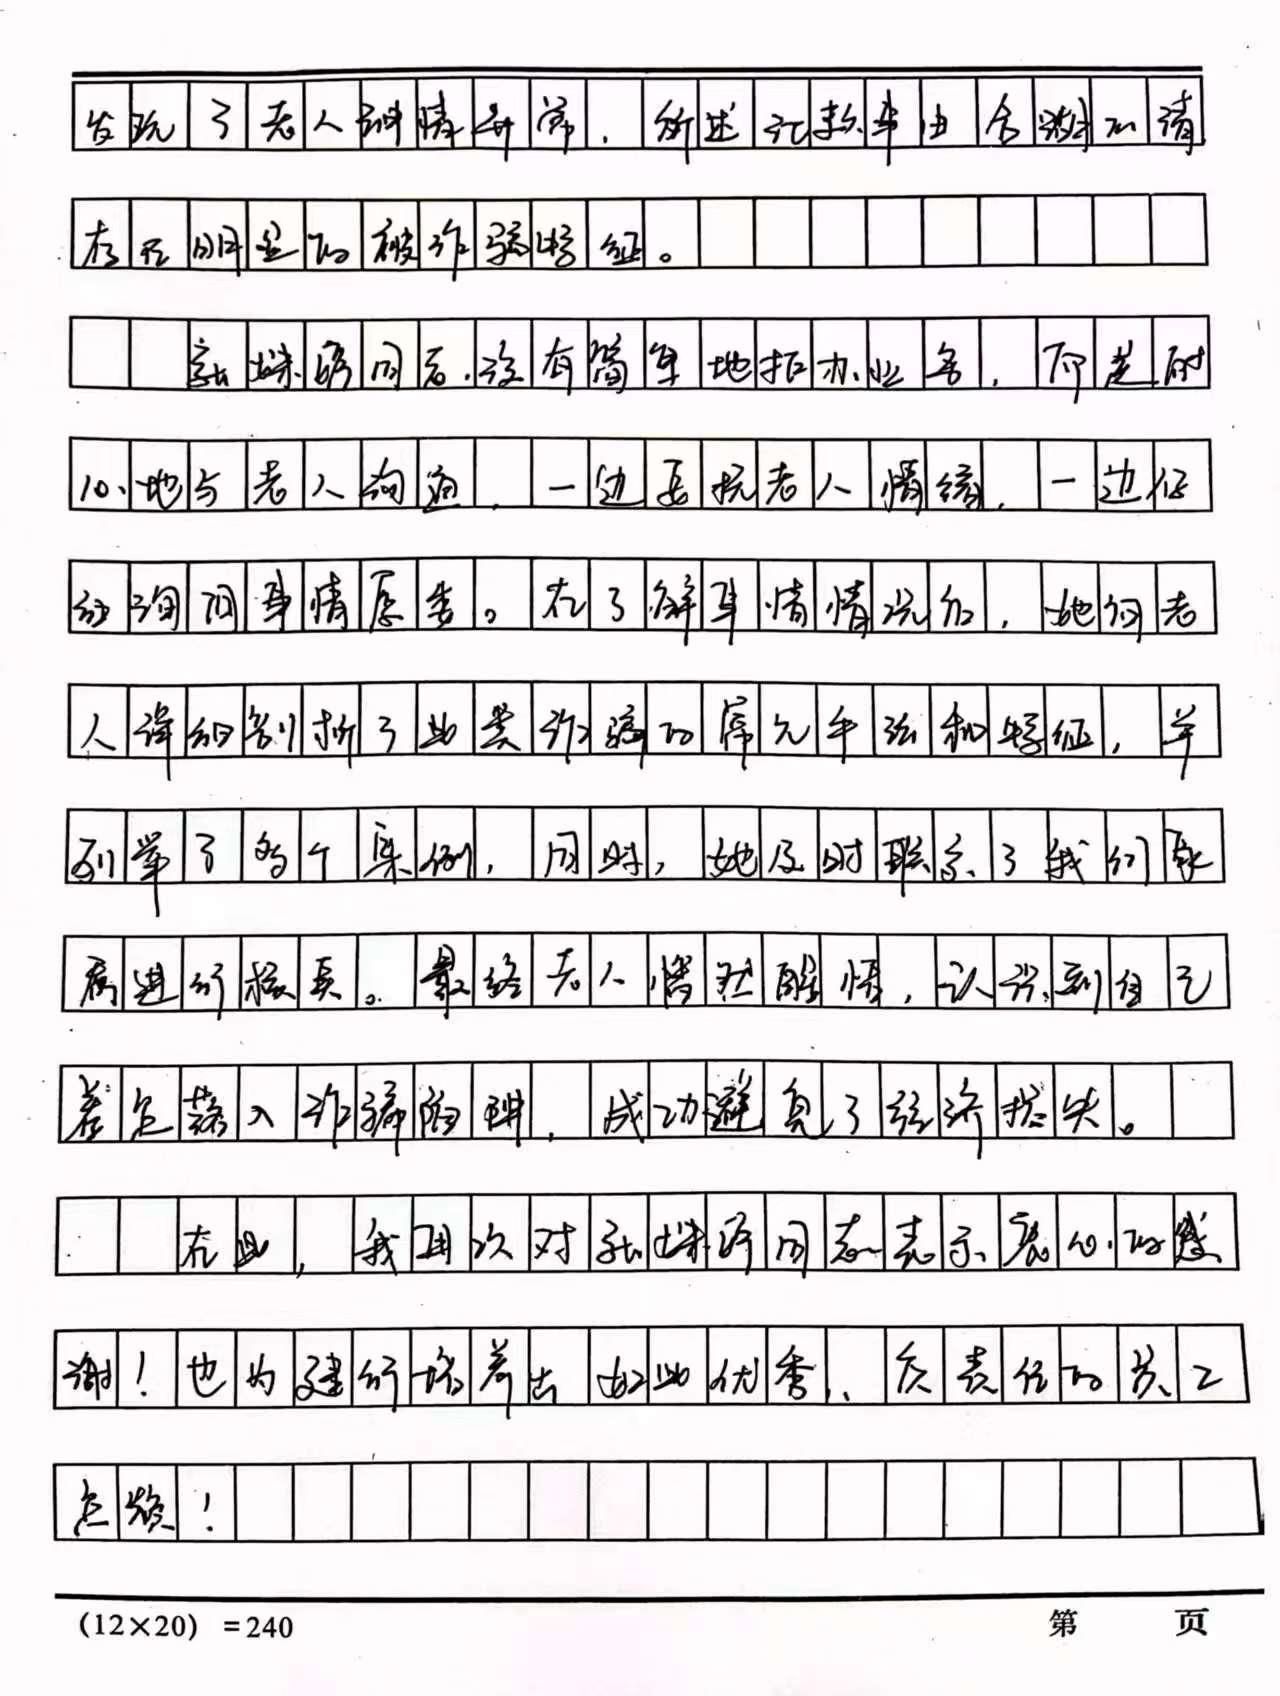 发现了老人神情异常,所述汇款事由含糊不清
存在明显的被诈骗特征。
张姝婷同志没有简单地拒办业务,而是耐
心地与老人沟通,一边安抚老人情绪,一边仔
细询问事情原委。在了解事情情况后,她向老
人详细剖析了此类诈骗的常见手法和特征,并
列举了多个案例,同时,她及时联系了我们家
属进行核实。最终老人憣然醒悟,认识到自己
差点落入诈骗陷阱,成功避免了经济损失。
在此,我再次对张姝婷同志表示衷心的感
谢!也为建行培养出如此优秀、负责任的员工
点赞!
(12×20) =240
第 页